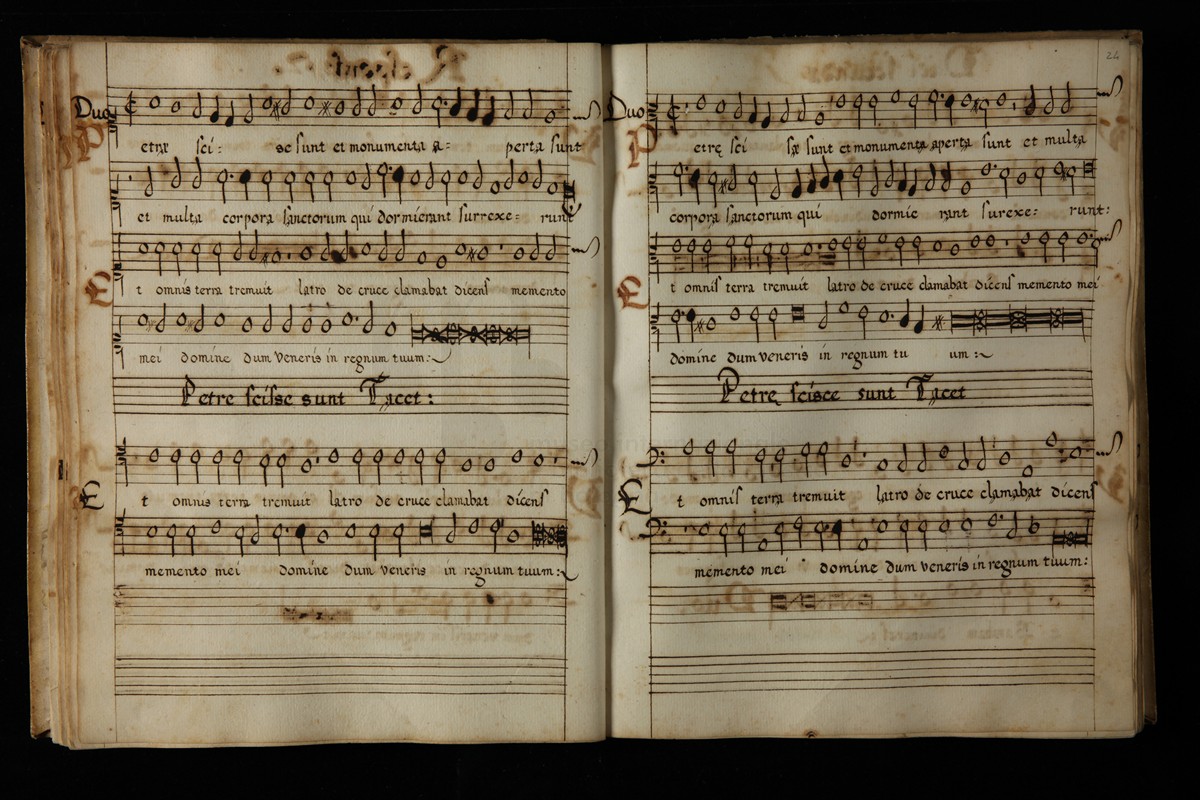 Duo
Petrę sci: sę sunt et monumenta a: perta sunt
et multa corpora sanctorum qui dormierant surrexe: runt
Et omnis terra tremuit latro de cruce clamabat dicens memento
mei domine dum veneris in regnum tuum:
Petre scisse sunt Tacet:
Et omnis terra tremuit latro de cruce clamabat dicens
memento mei domine dum veneris in regnum tuum:
24
Duo
Petrę sci sę sunt et monumenta aperta sunt et multa
corpora sanctorum qui dormie rant surexe: runt:
Et omnis terra tremuit latro de cruce clamabat dicens memento mei
domine dum veneris in regnum tu um:
Petrę scisce sunt Tacet
Et omnis terra tremuit latro de cruce clamabat dicens
memento mei domine dum veneris in regnum tuum: